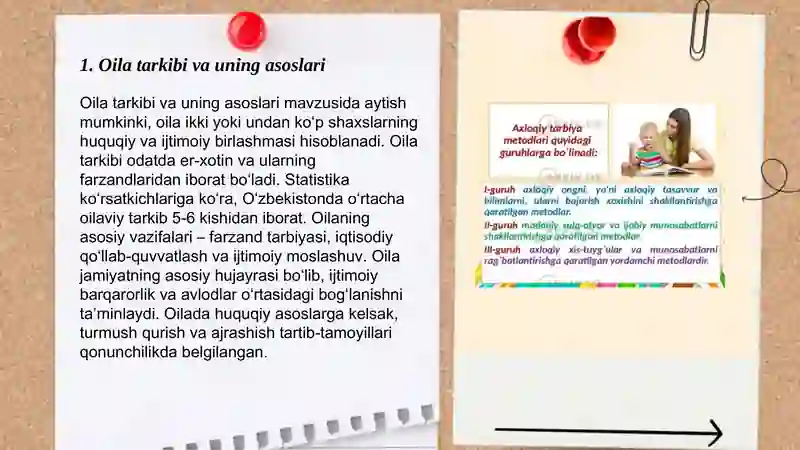 1. Oila tarkibi va uning asoslari
Oila tarkibi va uning asoslari mavzusida aytish
mumkinki, oila ikki yoki undan ko‘p shaxslarning
huquqiy va ijtimoiy birlashmasi hisoblanadi. Oila
tarkibi odatda er-xotin va ularning
farzandlaridan iborat bo‘ladi. Statistika
ko‘rsatkichlariga ko‘ra, O‘zbekistonda o‘rtacha
oilaviy tarkib 5-6 kishidan iborat. Oilaning
asosiy vazifalari – farzand tarbiyasi, iqtisodiy
qo‘llab-quvvatlash va ijtimoiy moslashuv. Oila
jamiyatning asosiy hujayrasi bo‘lib, ijtimoiy
barqarorlik va avlodlar o‘rtasidagi bog‘lanishni
ta’minlaydi. Oilada huquqiy asoslarga kelsak,
turmush qurish va ajrashish tartib-tamoyillari
qonunchilikda belgilangan.
Axloqiy tarbiya
metodlari quyidagi
guruhlarga bo`linadi:
I-guruh axloqiy ongni, ya'ni axloqiy tasavvur va
bilimlarni, ularni bajarish xoxishini shakllantirishga
qaratilgan metodlar.
II-guruh madaniy xulq-atvor va ijobiy munosabatlarni
shakllantirishga qaratilgan metodlar
III-guruh axloqiy xis-tuyg`ular va munosabatlarni
rag`batlantirishga qaratilgan yordamchi metodlardir.